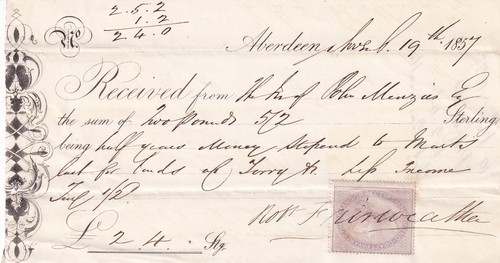 2.5.2
1.2
2.4.0
No
Aberdeen Novr. 19th. 1857
Received from The Trs of John Menzies Esq
the sum of Two Pounds 5/2 Sterling
being half years Money Stipend to Marts
last for lands of Torry &c less Income
Tax 1/2
Robt Fairweather
£ 2 4 . Stg